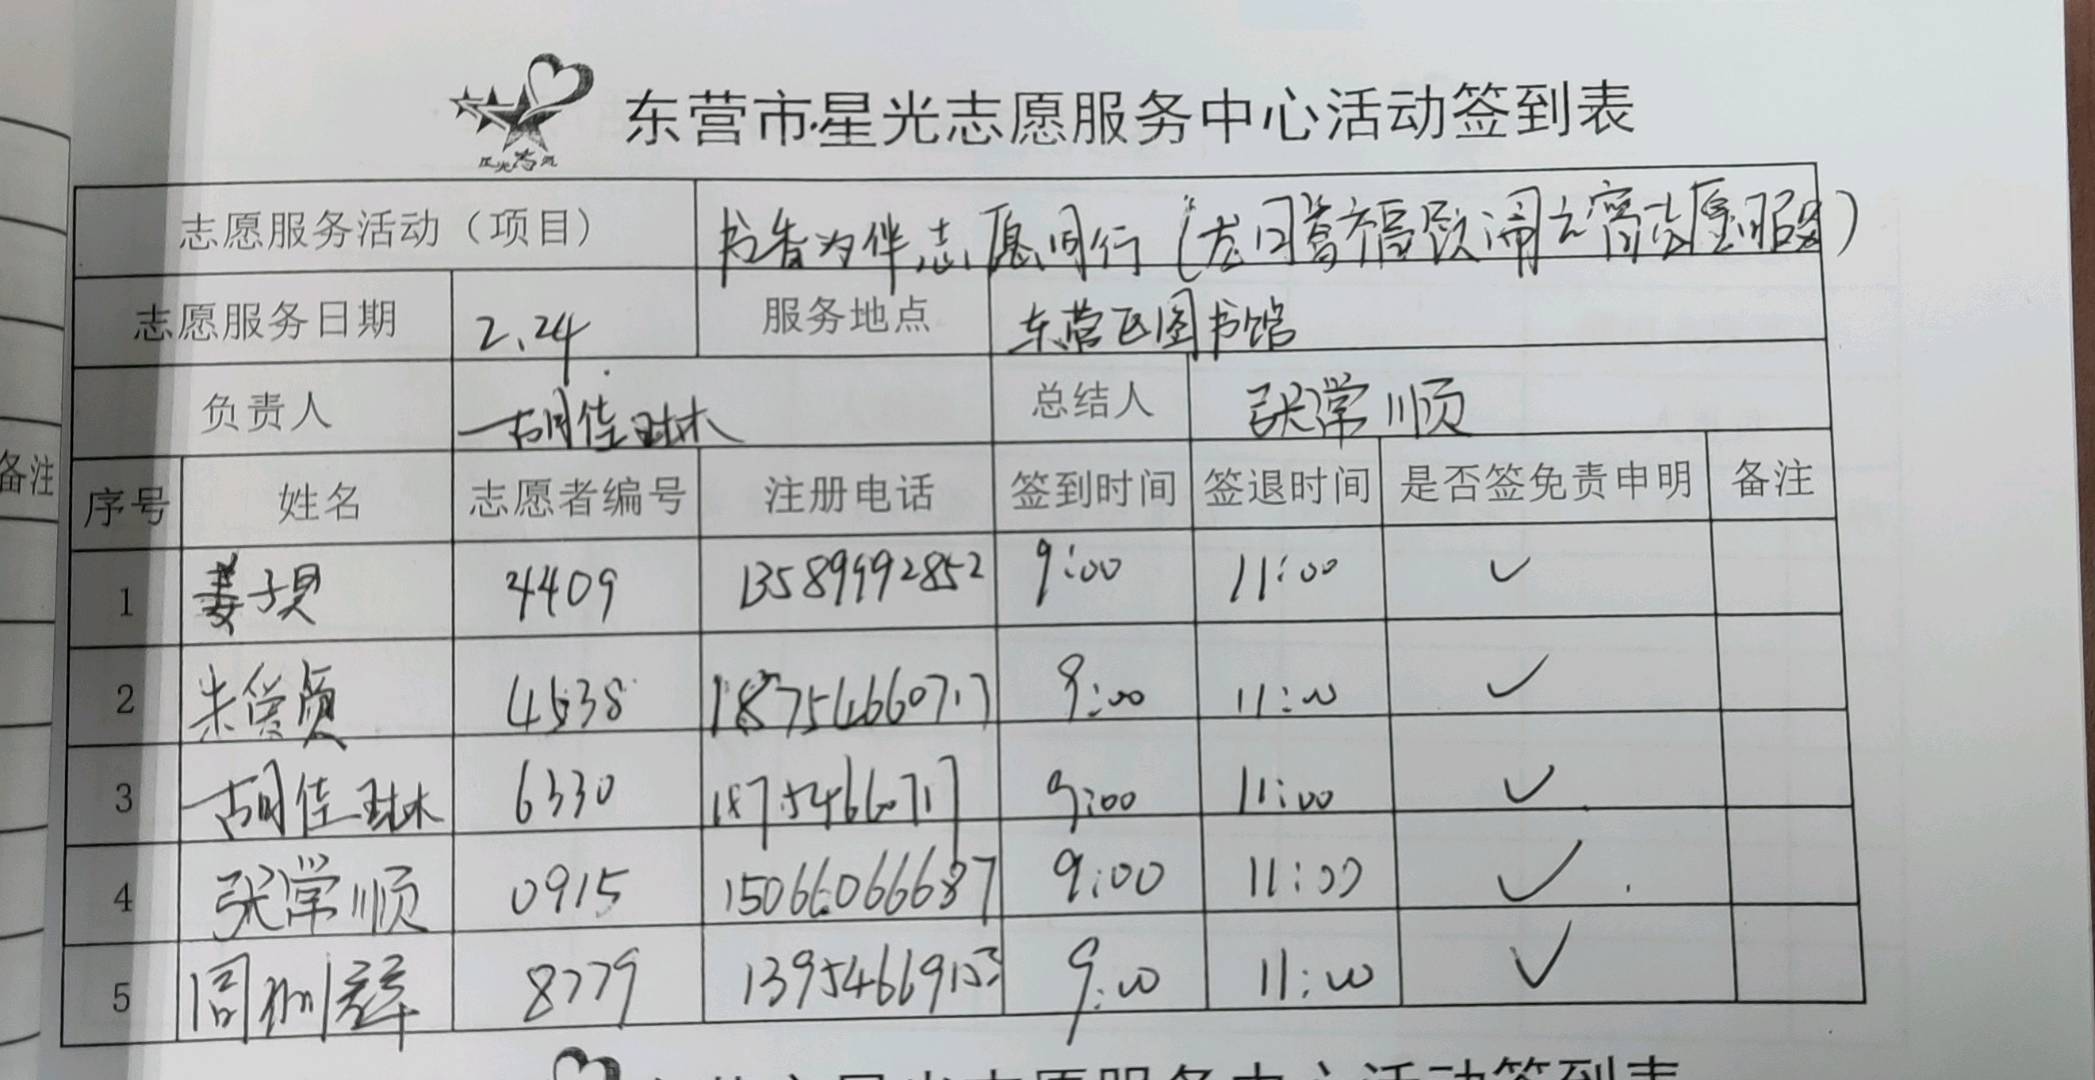 备注
星光志愿
东营市星光志愿服务中心活动签到表
志愿服务活动（项目） 书香为伴志愿同行（龙口衔福欢闹元宵志愿服务）
志愿服务日期 2.24 服务地点 东营区图书馆
负责人 胡佳琳 总结人 张学顺
序号 姓名 志愿者编号 注册电话 签到时间 签退时间 是否签免责申明 备注
1 姜子贝 4409 13589992852 9:00 11:00 ✓
2 朱 4538 18754666717 9:00 11:00 ✓
3 胡佳琳 6330 18754666717 9:00 11:00 ✓
4 张学顺 0915 15066066687 9:00 11:00 ✓
5 8779 13954669153 9:00 11:00 ✓
东营市星光志愿服务中心活动签到表